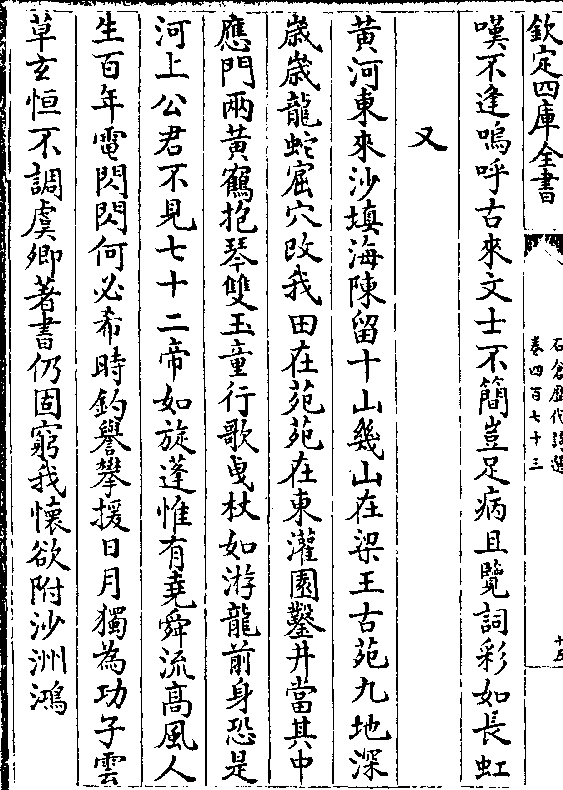 欽定四庫全書
石倉歷代詩選
卷四百七十三
十五
嘆不逢嗚呼古來文士不簡豈足病且覽詞彩如長虹
又
黃河東來沙填海陳留十山幾山在梁王古苑九地深
歲歲龍蛇窟穴改我田在苑苑在東灌園鑿井當其中
應門兩黃鶴抱琴雙玉童行歌曳杖如游龍前身恐是
河上公君不見七十二帝如旋蓬惟有堯舜流髙風人
生百年電閃閃何必希時釣譽攀援日月獨為功子雲
草玄恒不調虞卿著書仍固窮我懷欲附沙洲鴻